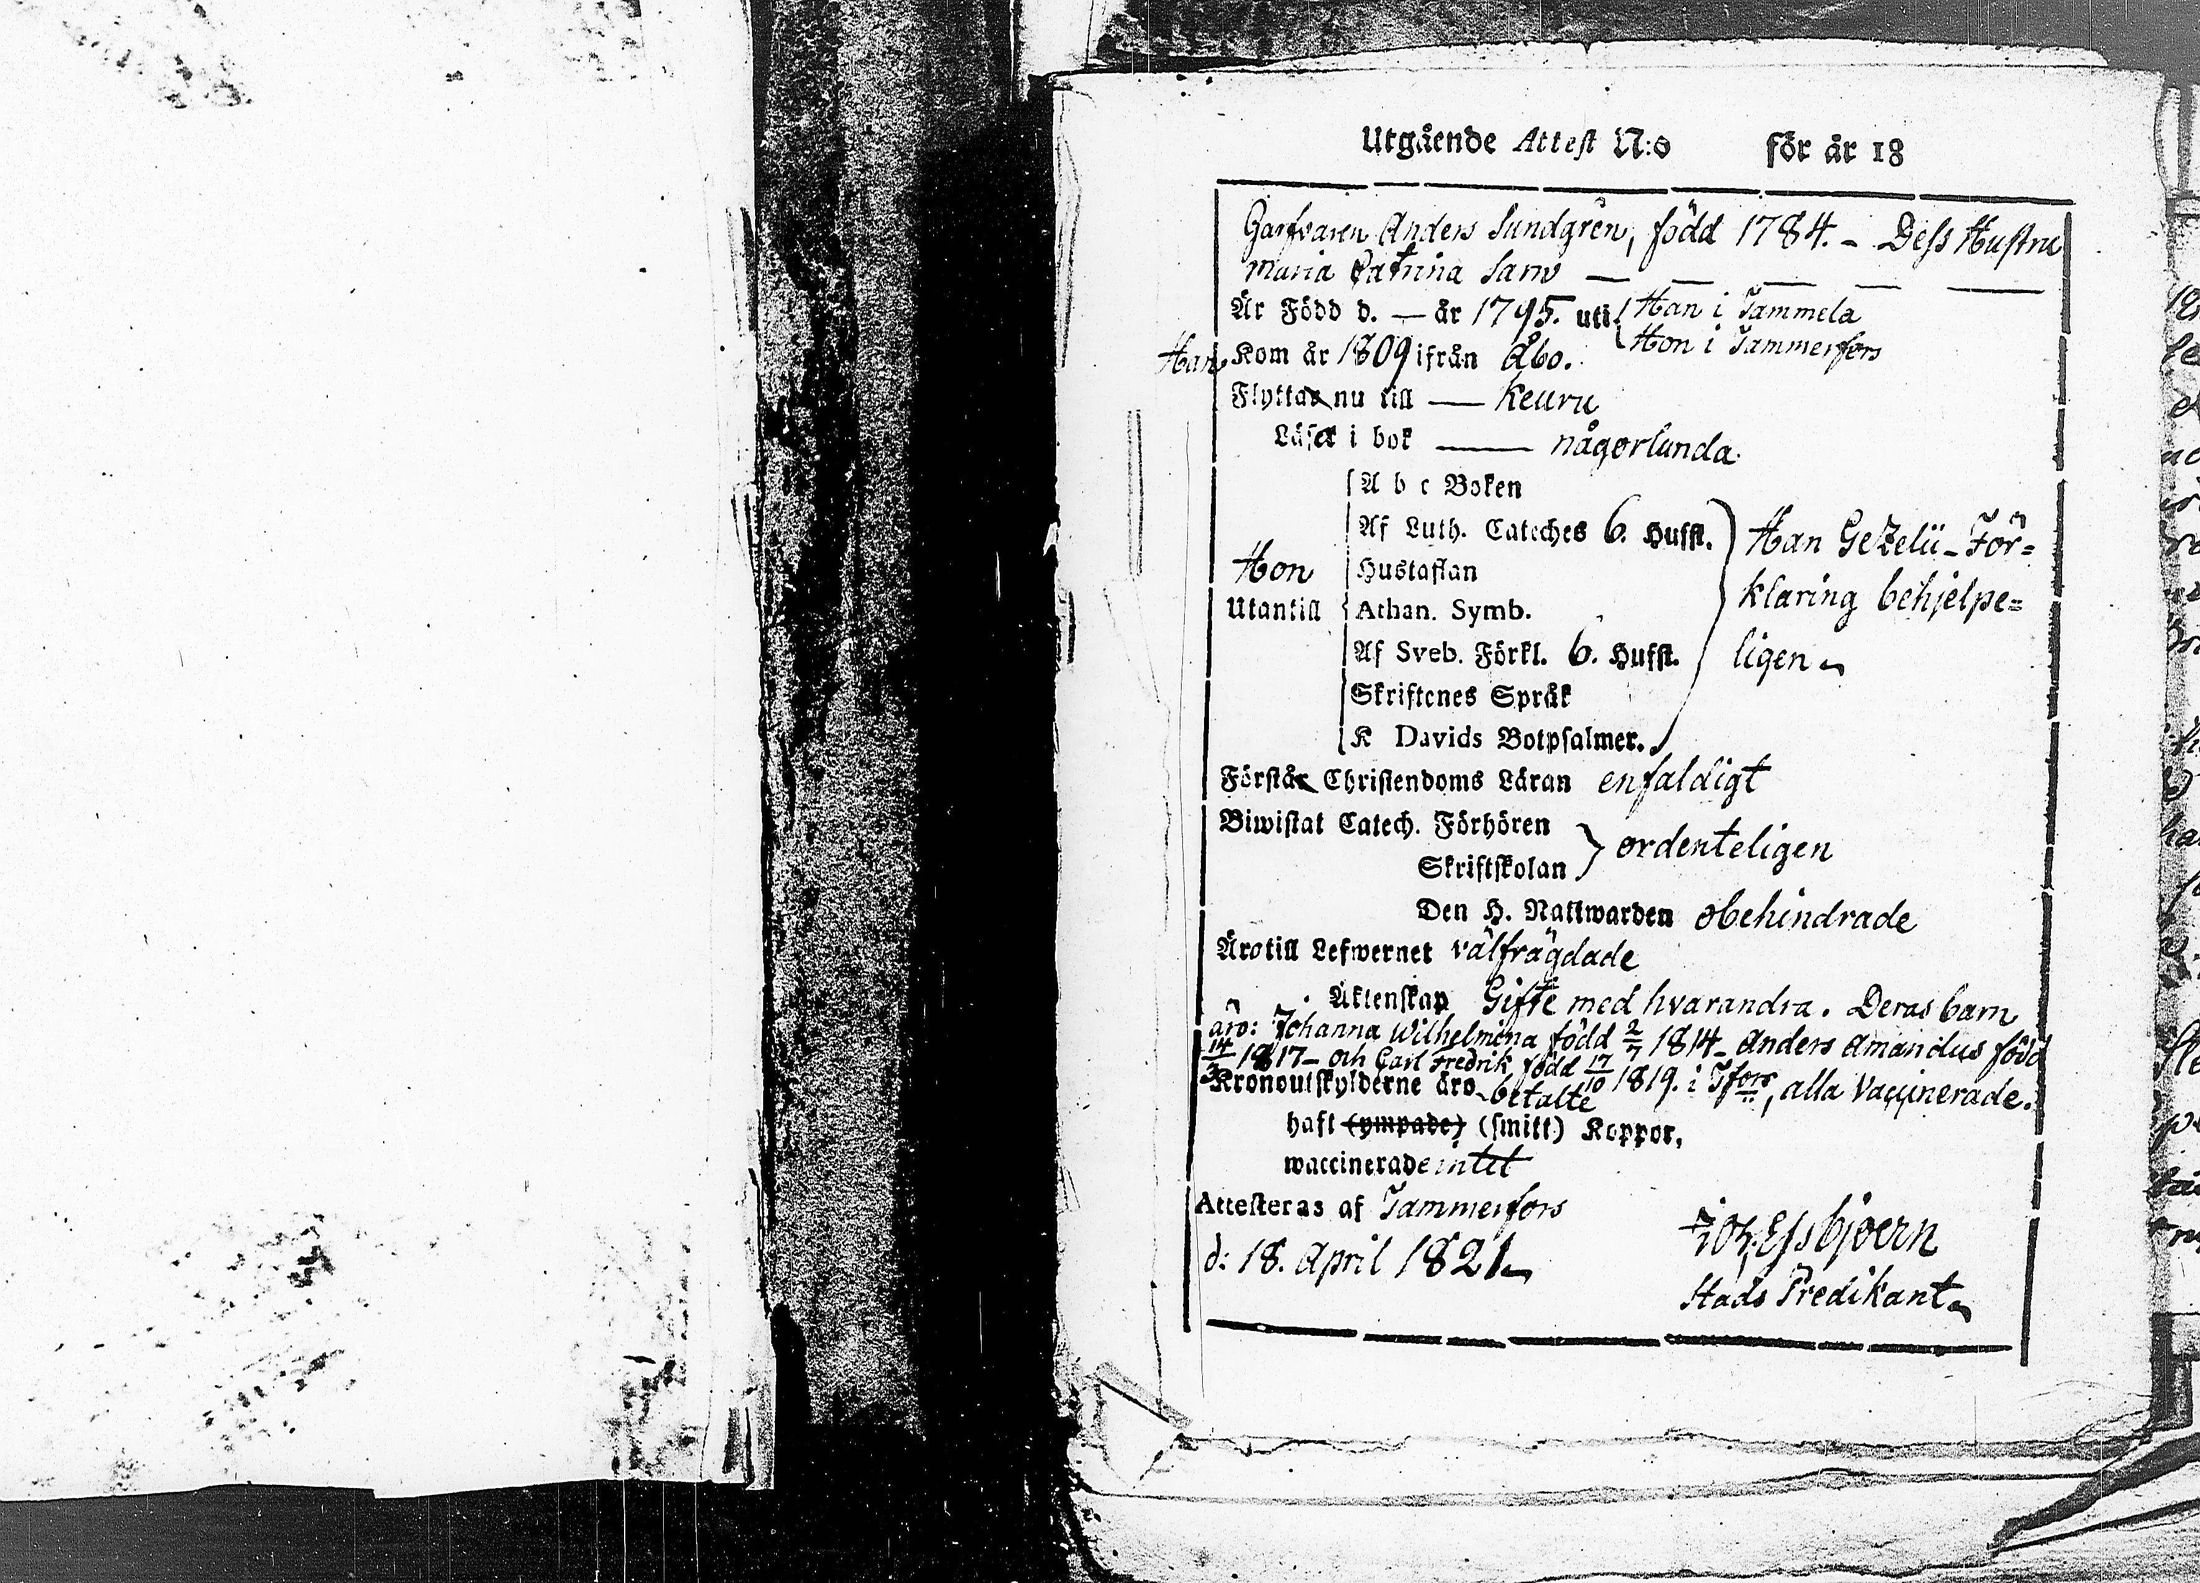 Utgående Attest N:o för år 18
Garfvaren Anders Sundgrén, född 1784. - Dess Hustru
Maria Catrina Sarn — — — — —
Är Född d. — år 1795. uti Han i Tammela
Hon i Tammerfors
Han Kom år 1809 ifrån Åbo.
Flytta nu till — Keuru
Läsa i bok — någorlunda.
A b c Boken
Af Luth. Cateches 6. Hufst. Han Gezelii - För=
Hon Hustaflan
Utantill Athan. Symb. klaring behjelpe=
Af Sveb. Förkl. 6. Hufst. ligen
Skriftenes Språk
K Davids Botpsalmer.
Förstå Christendoms Läran enfaldigt
Biwistat Catech. Förhören
Skriftskolan ordenteligen
Den H. Nattwarden obehindrade
Äro till Lefwernet välfrägdade
Äktenskap Gifte med hvarandra. Deras barn
äro: Johanna Wilhelmina född 2/7 1814 - Anders Amandus född
14/3 1817 - och Carl Fredrik född 17/10 1819. i Tfors, alla Vaccinerade.
Kronoutskylderne äro betalte
haft (ympade) (smitt) Koppor,
waccinerade intet
Attesteras af Tammerfors
d: 18. April 1821
Joh. Essbjoern
Stads Predikant